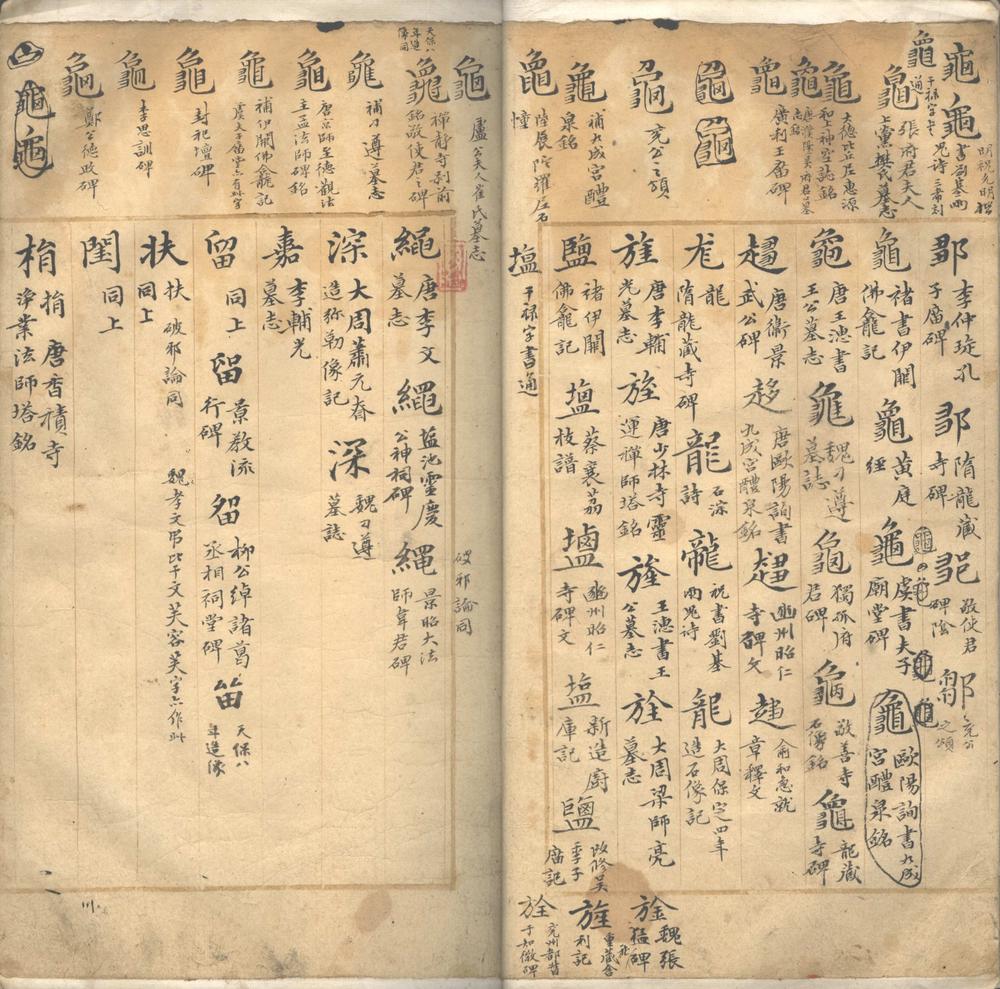 明祝允明楷
書劉基兩
鬼詩 三希刻
龜
干祿字書
通
張府君夫人
上黨樊氏墓志
龜
大德比丘惠源
和上神空誌銘
龜
廣利王廟碑
龜
兗公之頌
龜
補九成宮醴
泉銘
龜
陸展陀羅尼石
幢
鄒
李仲琁孔
子廟碑
隋龍藏
寺碑
敬使君
碑陰
兗公
之頌
龜
褚書伊闕
佛龕記
龜
黃庭
經
龜
虞書夫子
廟堂碑
龜
歐陽詢書九成
宮醴泉銘
龜
唐王憑書
王公墓志
龜
魏刁遵
墓誌
龜
獨孤府
君碑
龜
敬善寺
石像銘
龜
龍藏
寺碑
趨
唐衛景
武公碑
趍
唐歐陽詢書
九成宮醴泉銘
趨
豳州昭仁
寺碑文
趨
俞和急就
章釋文
龍
隋龍藏寺
碑
龍
石淙
詩
龍
祝書劉基
兩鬼詩
龍
大周保定四年
造石像記
旌
唐李輔
光墓志
旌
唐少林寺靈
運禪師塔銘
旌
王憑書王
公墓志
旌
大周梁師亮
墓志
旌
魏張
猛碑
旌
重藏舍
利記
旌
兗州都督
于知微碑
鹽
褚伊闕
佛龕記
塩
蔡襄荔
枝譜
鹽
豳州昭仁
寺碑文
塩
新造廚
庫記
鹽
改修吳
季子
廟記
塩
干祿字書通
龜
盧公夫人崔氏墓志
天保八
年造
像同
龜
禪靜寺剎前
銘敬使君之碑
龜
補刁遵墓志
龜
唐宗師至德觀法
主孟法師碑銘
龜
補伊闕佛龕記
虞夫子廟堂
龜
封祀壇碑
龜
李思訓碑
龜
鄭公德政碑
繩
唐李文
墓志
繩
鹽池靈慶
公神祠碑
繩
景昭大法
師韋君碑
破邪論同
深
大周蕭元眘
造弥勒像記
深
魏刁遵
墓誌
嘉
李輔光
墓志
留
同上
留
景教流
行碑
留
柳公綽諸葛
丞相祠堂碑
留
天保八
年造像
扶
扶 破邪論同
同上
魏孝文弔比干文芙容芙字亦作此
閏
同上
捐
捐 唐香積寺
淨業法師塔銘